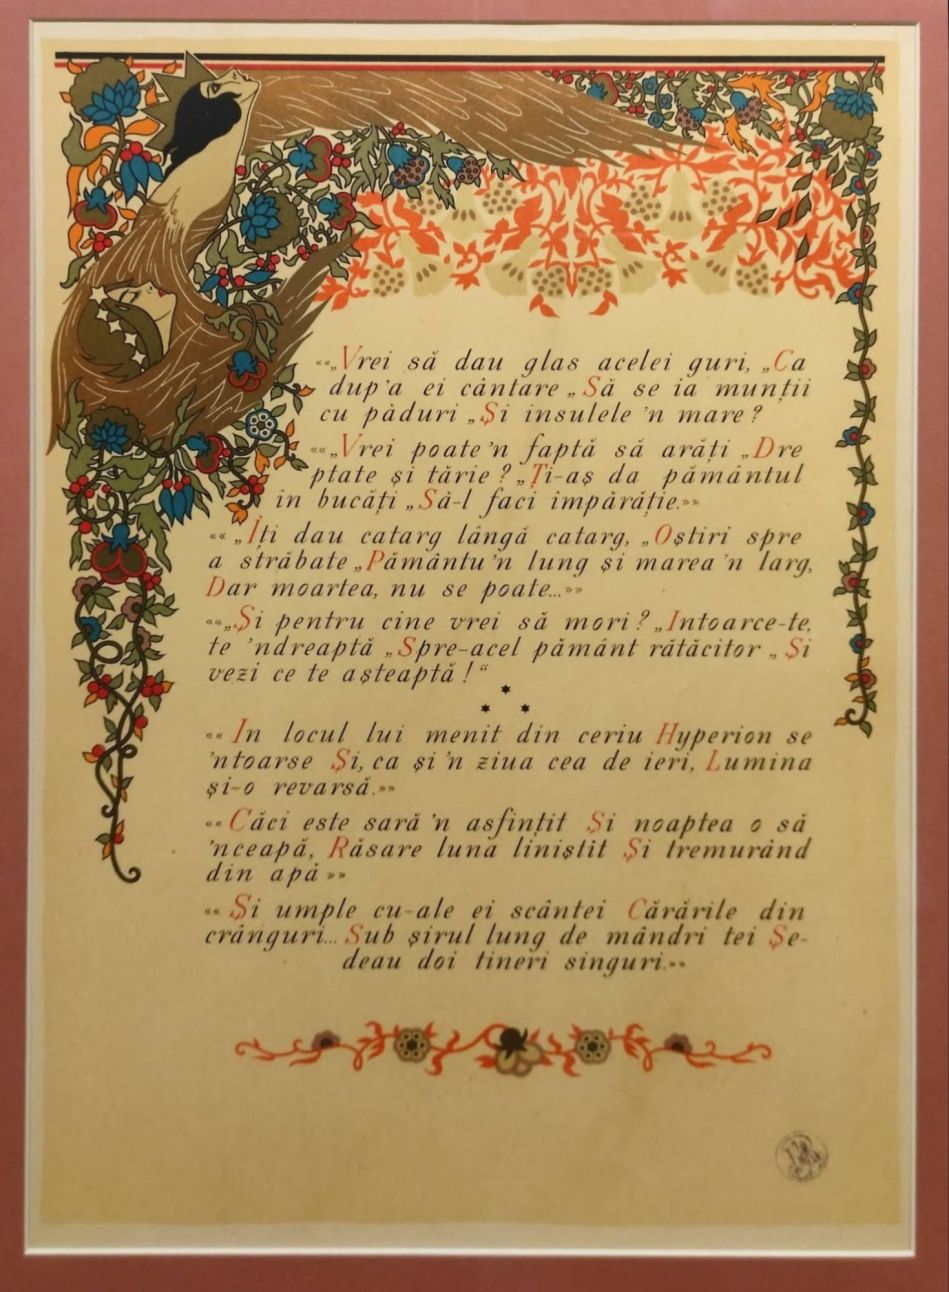 ««„Vrei să dau glas acelei guri, „Ca
dup'a ei cântare „Să se ia munții
cu păduri „Și insulele 'n mare?
««„Vrei poate'n faptă să arăți „Dre
ptate și tărie? „Ți-aș da pământul
in bucăți „Să-l faci împărăție.»»
««„Iți dau catarg lângă catarg, „Oștiri spre
a străbate „Pământu'n lung și marea'n larg,
Dar moartea, nu se poate...»»
««„Și pentru cine vrei să mori? „Intoarce-te,
te 'ndreaptă „Spre-acel pământ rătăcitor „Și
vezi ce te așteaptă!“
««In locul lui menit din ceriu Hyperion se
'ntoarse Și, ca și'n ziua cea de ieri, Lumina
și-o revarsă.»»
««Căci este sară'n asfințit Și noaptea o să
'nceapă, Răsare luna liniștit Și tremurând
din apă»»
««Și umple cu-ale ei scântei Cărările din
crânguri... Sub șirul lung de mândri tei Șe-
deau doi tineri singuri.»»